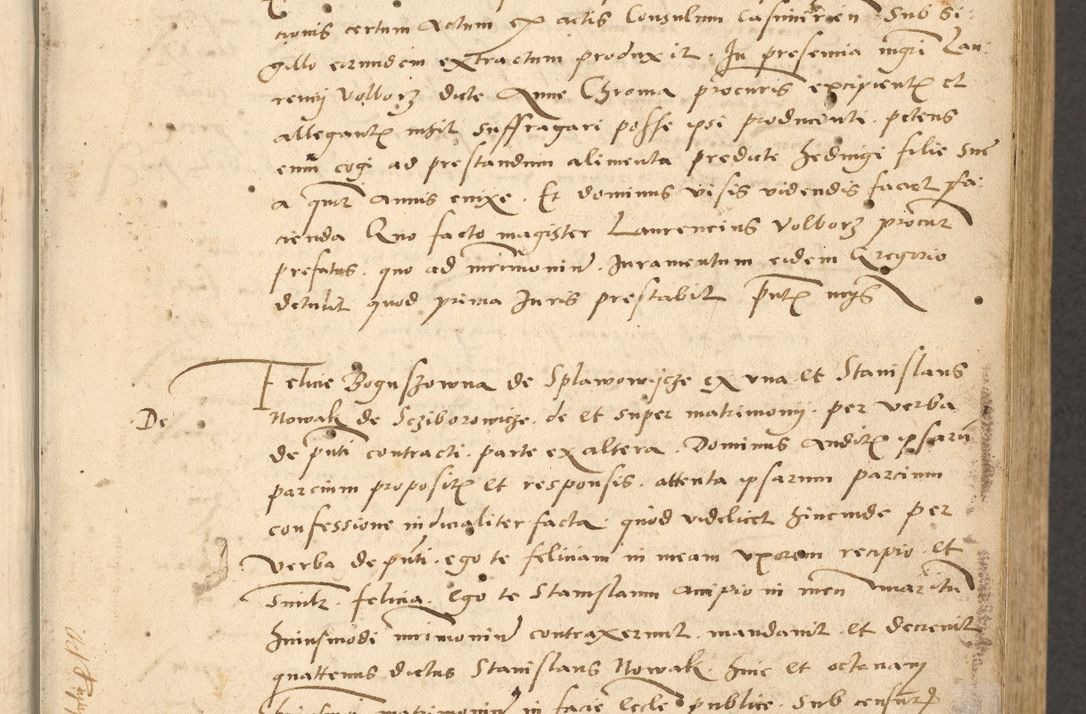 tionis certum Actum ex actis Consulum Casimirien Sub si
gillo eorundem extractum produxit. In presencia mgri Lau
rencij Volborz dicte Anne Chroma procuris excipientis et
allegantis nihil suffragari posse ipsi producenti. petens
eum cogi ad prestandum alimenta predicte Hedwigi filie sue
a quinque Annis enixe. Et dominus visis videndis facere fa
cienda Quo facto magister Laurencius Volborz procur
prefatus. quo ad mrimoniu. Juramentum eidem Gregorio
detulit quod prima Juris prestabit
Felicie Boguszowna de Splawowycze ex vna et Stanislaus
De
Nowak de Scziborowicze. de et super matrimonij. per verba
de pnti contracti. parte ex altera. Dominus Auditis ipsarum
parcium propositis et responsis. attenta ipsarum parcium
confessione indicialiter facta. quod videlicet hincinde per
verba de pnti. ego te feliciam in meam vxorem recipio. et
Similr. felicia. Ego te Stanislaum accipio in meu maritu
huiusmodi mrimoniu contraxerunt. mandauit et decreuit
quattenus dictus Stanislaus Nowak. hinc et octauam
matrimoniu in facie Eccle publice. Sub censuris